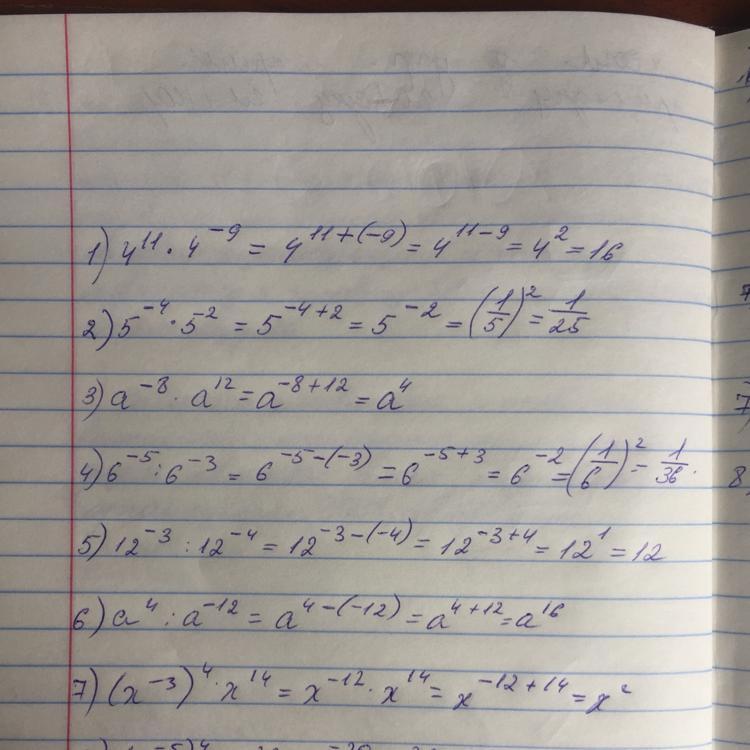 1) 4¹¹ · 4⁻⁹ = 4¹¹⁺⁽⁻⁹⁾ = 4¹¹⁻⁹ = 4² = 16
2) 5⁻⁴ · 5² = 5⁻⁴⁺² = 5⁻² = (1/5)² = 1/25
3) a⁻⁸ · a¹² = a⁻⁸⁺¹² = a⁴
4) 6⁻⁵ : 6⁻³ = 6⁻⁵⁻⁽⁻³⁾ = 6⁻⁵⁺³ = 6⁻² = (1/6)² = 1/36.
5) 12⁻³ : 12⁻⁴ = 12⁻³⁻⁽⁻⁴⁾ = 12⁻³⁺⁴ = 12¹ = 12
6) a⁴ : a⁻¹² = a⁴⁻⁽⁻¹²⁾ = a⁴⁺¹² = a¹⁶
7) (x⁻³)⁴ · x¹⁴ = x⁻¹² · x¹⁴ = x⁻¹²⁺¹⁴ = x²